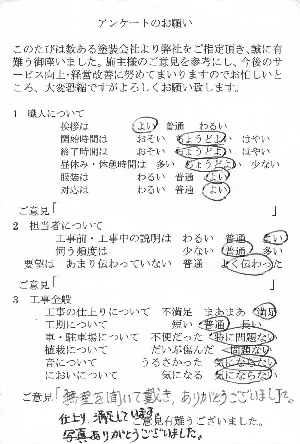 アンケートのお願い
このたびは数ある塗装会社より弊社をご指定頂き、誠に有
難う御座いました。施主様のご意見を参考にし、今後のサ
ービス向上・経営改善に努めてまいりますのでお忙しいと
ころ、大変恐縮ですがよろしくお願い致します。
1 職人について
挨拶は よい 普通 わるい
開始時間は おそい ちょうどよい はやい
終了時間は おそい ちょうどよい はやい
昼休み・休憩時間は 多い ちょうどよい 少ない
服装は わるい 普通 よい
対応は わるい 普通 よい
ご意見「 」
2 担当者について
工事前・工事中の説明は わるい 普通 よい
伺う頻度は 少ない 普通 多い
要望は あまり伝わっていない 普通 よく伝わった
ご意見「 」
3 工事全般
工事の仕上りについて 不満足 まあまあ 満足
工期について 短い 普通 長い
車・駐車場について 不便だった 特に問題ない
植栽について だいぶ傷んだ 問題ない
音について うるさかった 気にならない
においについて 気になる 気にならない
ご意見「希望を聞いて戴き、ありがとうございました。
仕上り、満足しています。
ご意見有難うございました。
写真ありがとうございました。